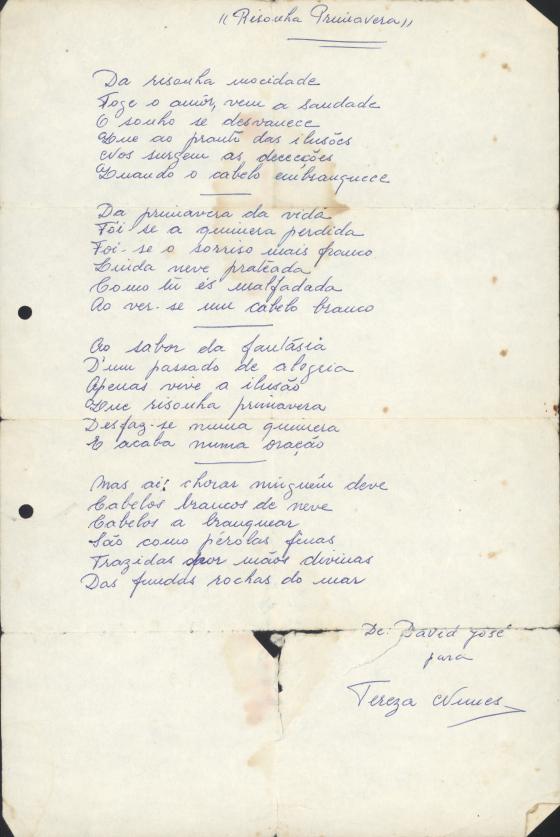 "Risonha Primavera"
Da risonha mocidade
Foge o amôr, vem a saudade
O sonho se desvanece
Que ao pranto das ilusões
Nos surgem as dececções
Quando o cabelo embranquece
Da primavera da vida
Foi se a quimera perdida
Foi-se o sorriso mais franco
Linda neve prateada
Como tu és malfadada
Ao ver-se um cabelo branco
Ao sabor da fantásia
D'um passado de alegria
Apenas vive a ilusão
Que risonha primavera
Desfaz-se numa quimera
E acaba numa oração
Mas ai! chorar ninguém deve
Cabelos brancos de neve
Cabelos a branquear
São como pérolas finas
Trazidas por mãos divinas
Das fundas rochas do mar
De: David José
para
Tereza Nunes